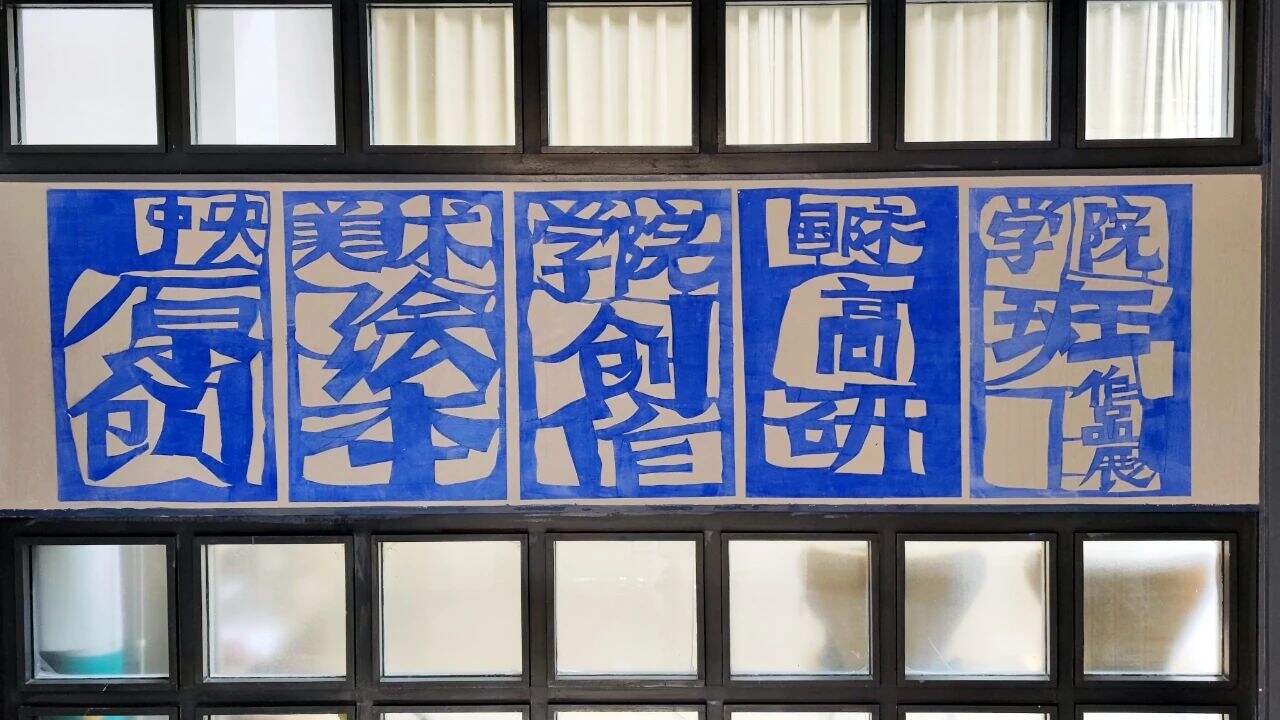 中央美术学院国际学院
原创绘本创作高研班
作品展